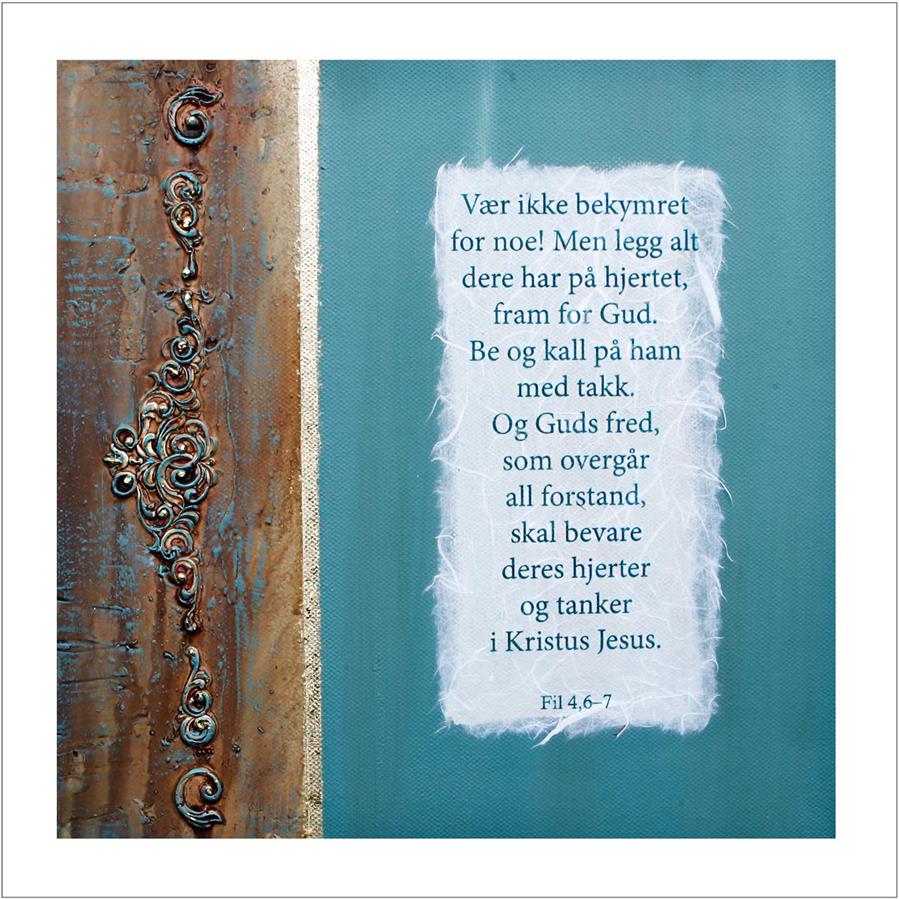 Vær ikke bekymret
for noe! Men legg alt
dere har på hjertet,
fram for Gud.
Be og kall på ham
med takk.
Og Guds fred,
som overgår
all forstand,
skal bevare
deres hjerter
og tanker
i Kristus Jesus.
Fil 4,6–7